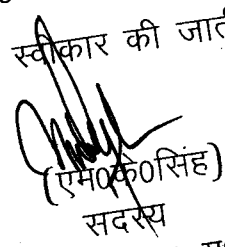 स्वीकार की जाती
(एम०के०सिंह)
सदस्य